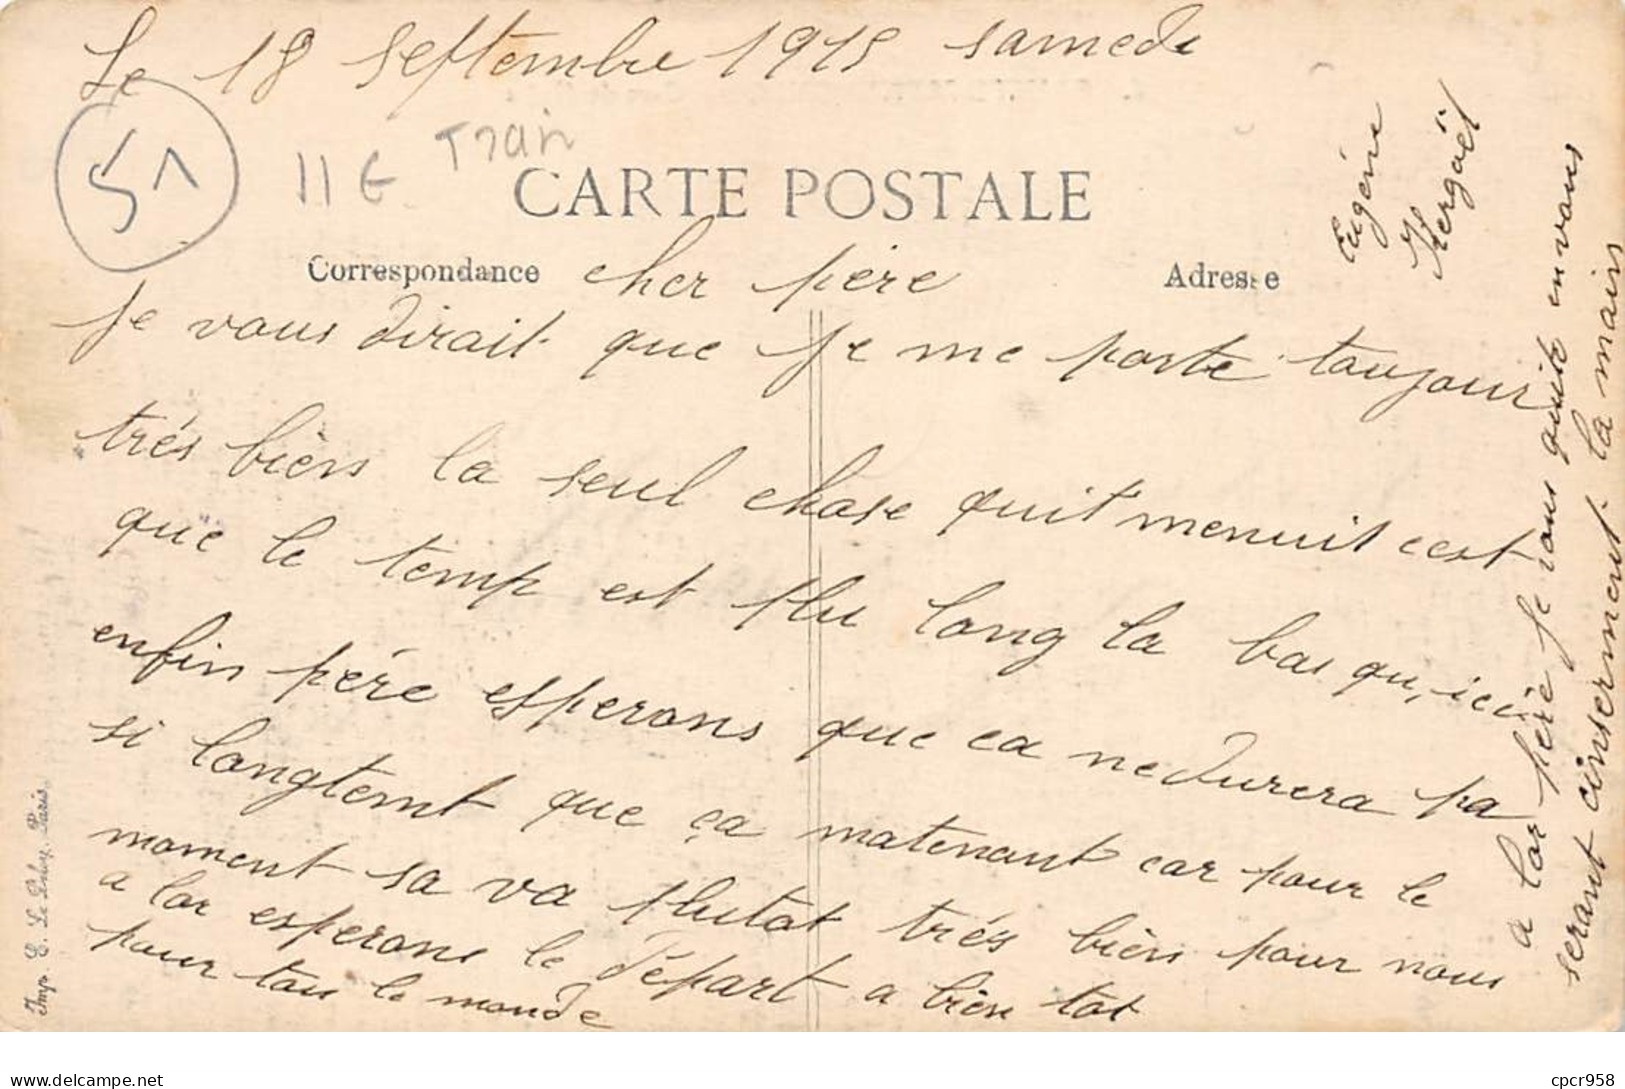 Le 18 septembre 1915 samedi
51
11 G Train
CARTE POSTALE
Correspondance
Adresse
cher père
Je vous dirait que je me porte toujour
trés bièns la seul chose quit menuit cest
que le temp est plu long la bas qu, icit
enfin pére esperons que ca nedurera pa
si longtemt que ça matenant car pour le
moment sa va plutot trés bièn pour nous
a lor esperons le départ a bièn tot
pour tou le monde
a lor père je vous quite en vous
serant cinserment la main
Eugéne
Kergoët
Imp. E. Le Deley, Paris.
delcampe.net
cpcr958